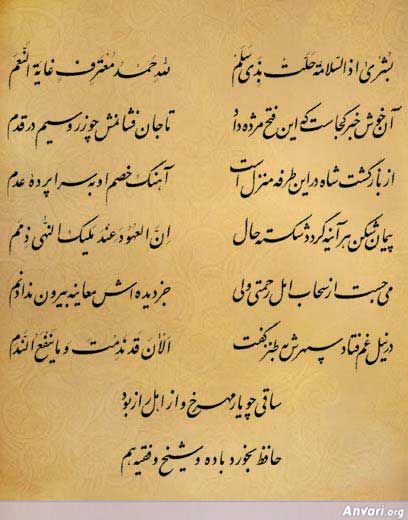 بشری اذ السلامة حلت بذی سلم    لله حمد معترف غایة النعم
آن خوش خبر کجاست که این فتح مژده داد    تا جان فشانمش چو زر و سیم در قدم
از بازگشت شاه در این طرفه منزل است    آهنگ خصم او به سراپرده عدم
پیمان شکن هرآینه گردد شکسته حال    ان العهود عند ملیک النهی ذمم
می‌جست از سحاب امل رحمتی ولی    جز دیده‌اش معاینه بیرون نداد نم
در نیل غم فتاد سپهرش به طنز گفت    الان قد ندمت و ما ینفع الندم
ساقی چو یار مهرخ و از اهل راز بود
حافظ بخورد باده و شیخ و فقیه هم
Anvari.org